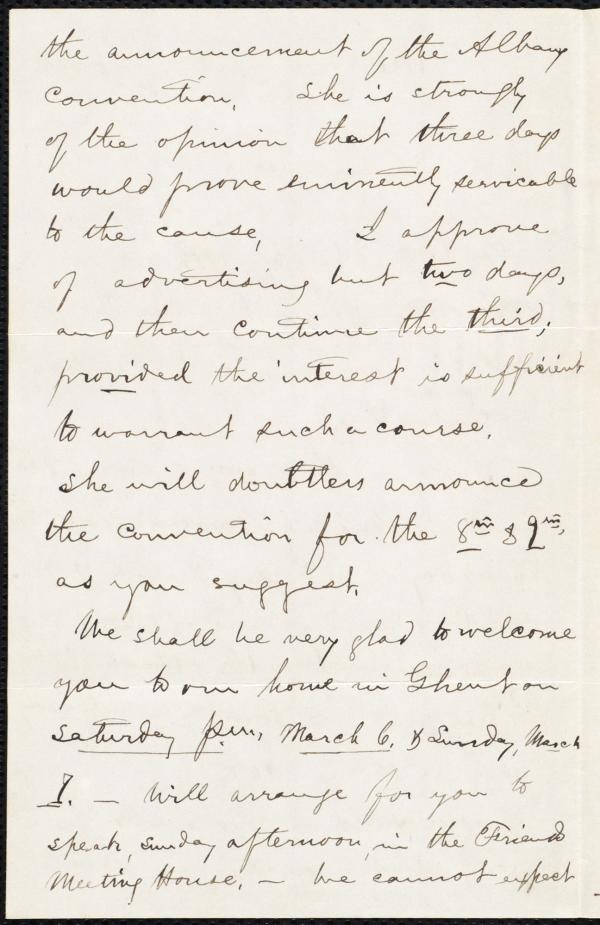 the announcement of the Albany
Convention. She is strongly
of the opinion that three days
would prove eminently servicable
to the cause. I approve
of advertising but two days,
and then continue the third,
provided the interest is sufficient
to warrant such a course.
She will doubtless announce
the Convention for the 8th & 9th,
as you suggest.
We shall be very glad to welcome
you to our home in Ghent on
Saturday P.M., March 6, & Sunday, March
7. — Will arrange for you to
speak, Sunday afternoon, in the Friends
Meeting House. — We cannot expect